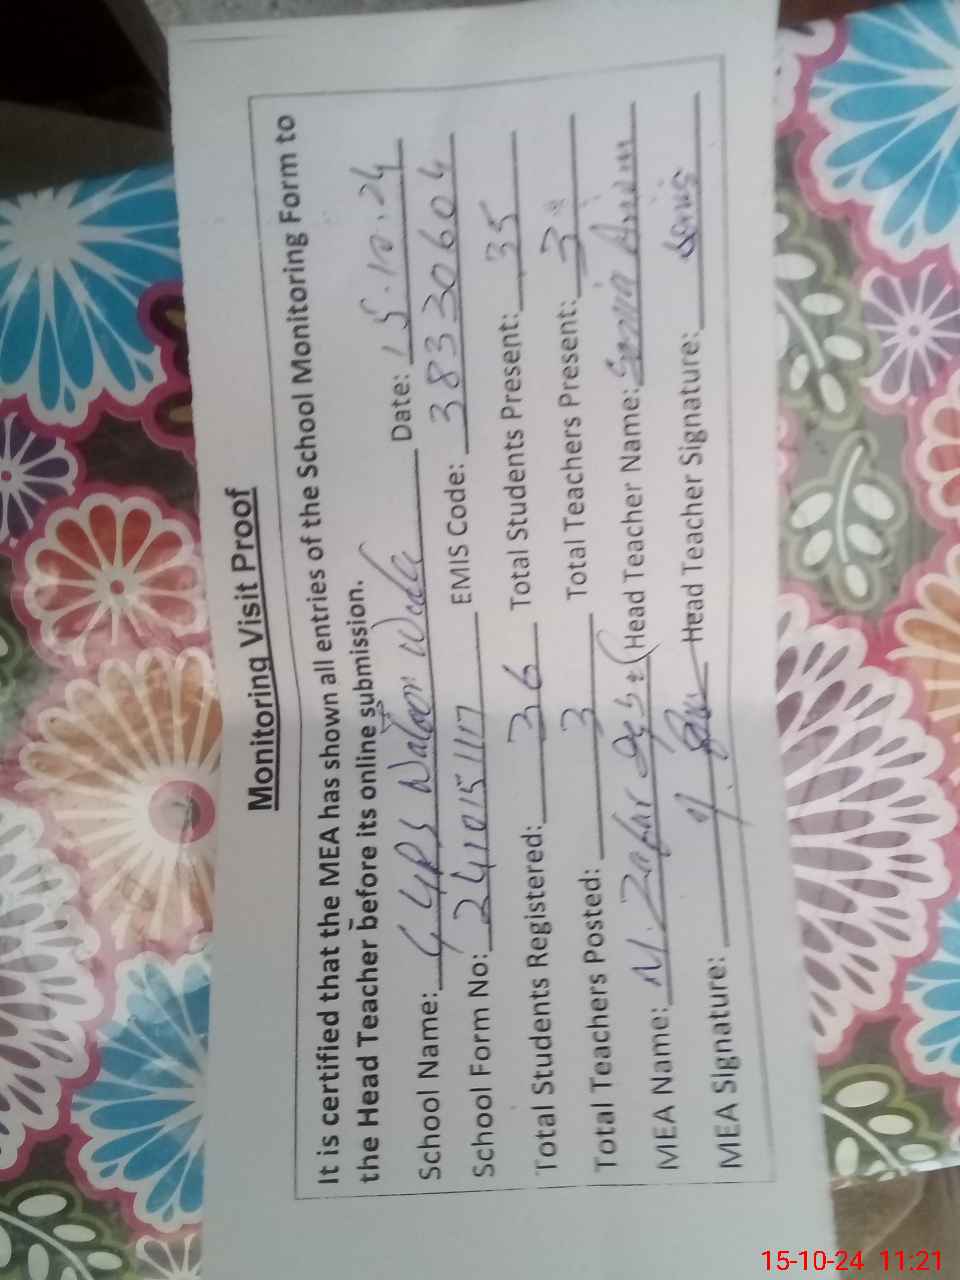 Monitoring Visit Proof
It is certified that the MEA has shown all entries of the School Monitoring Form to
the Head Teacher before its online submission.
School Name: GGPS Waloor Wada Date: 15.10.24
School Form No: 241015 1117 EMIS Code: 38330604
Total Students Registered: 36 Total Students Present: 35
Total Teachers Posted: 3 Total Teachers Present: 3
MEA Name: M. Zafar Head Teacher Name:
MEA Signature: Head Teacher Signature:
15-10-24 11:21